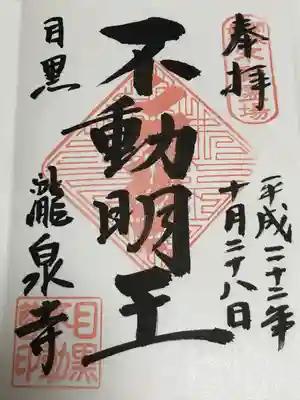 奉拝
平成二十二年
十月二十八日
不動明王
目黒
瀧泉寺